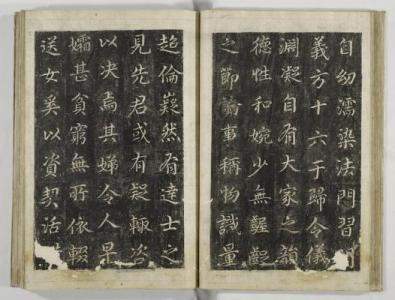 自幼濡染法門習聞
義方十六于歸令儀
淵凝自有大家之韻
德性和婉少無齷齪
之節論事稱物識量
超倫嶷然有達士之
見先君或有疑輒咨
以决焉其婦令人早
孀甚貧窮無所依輟
送女奚以資契活